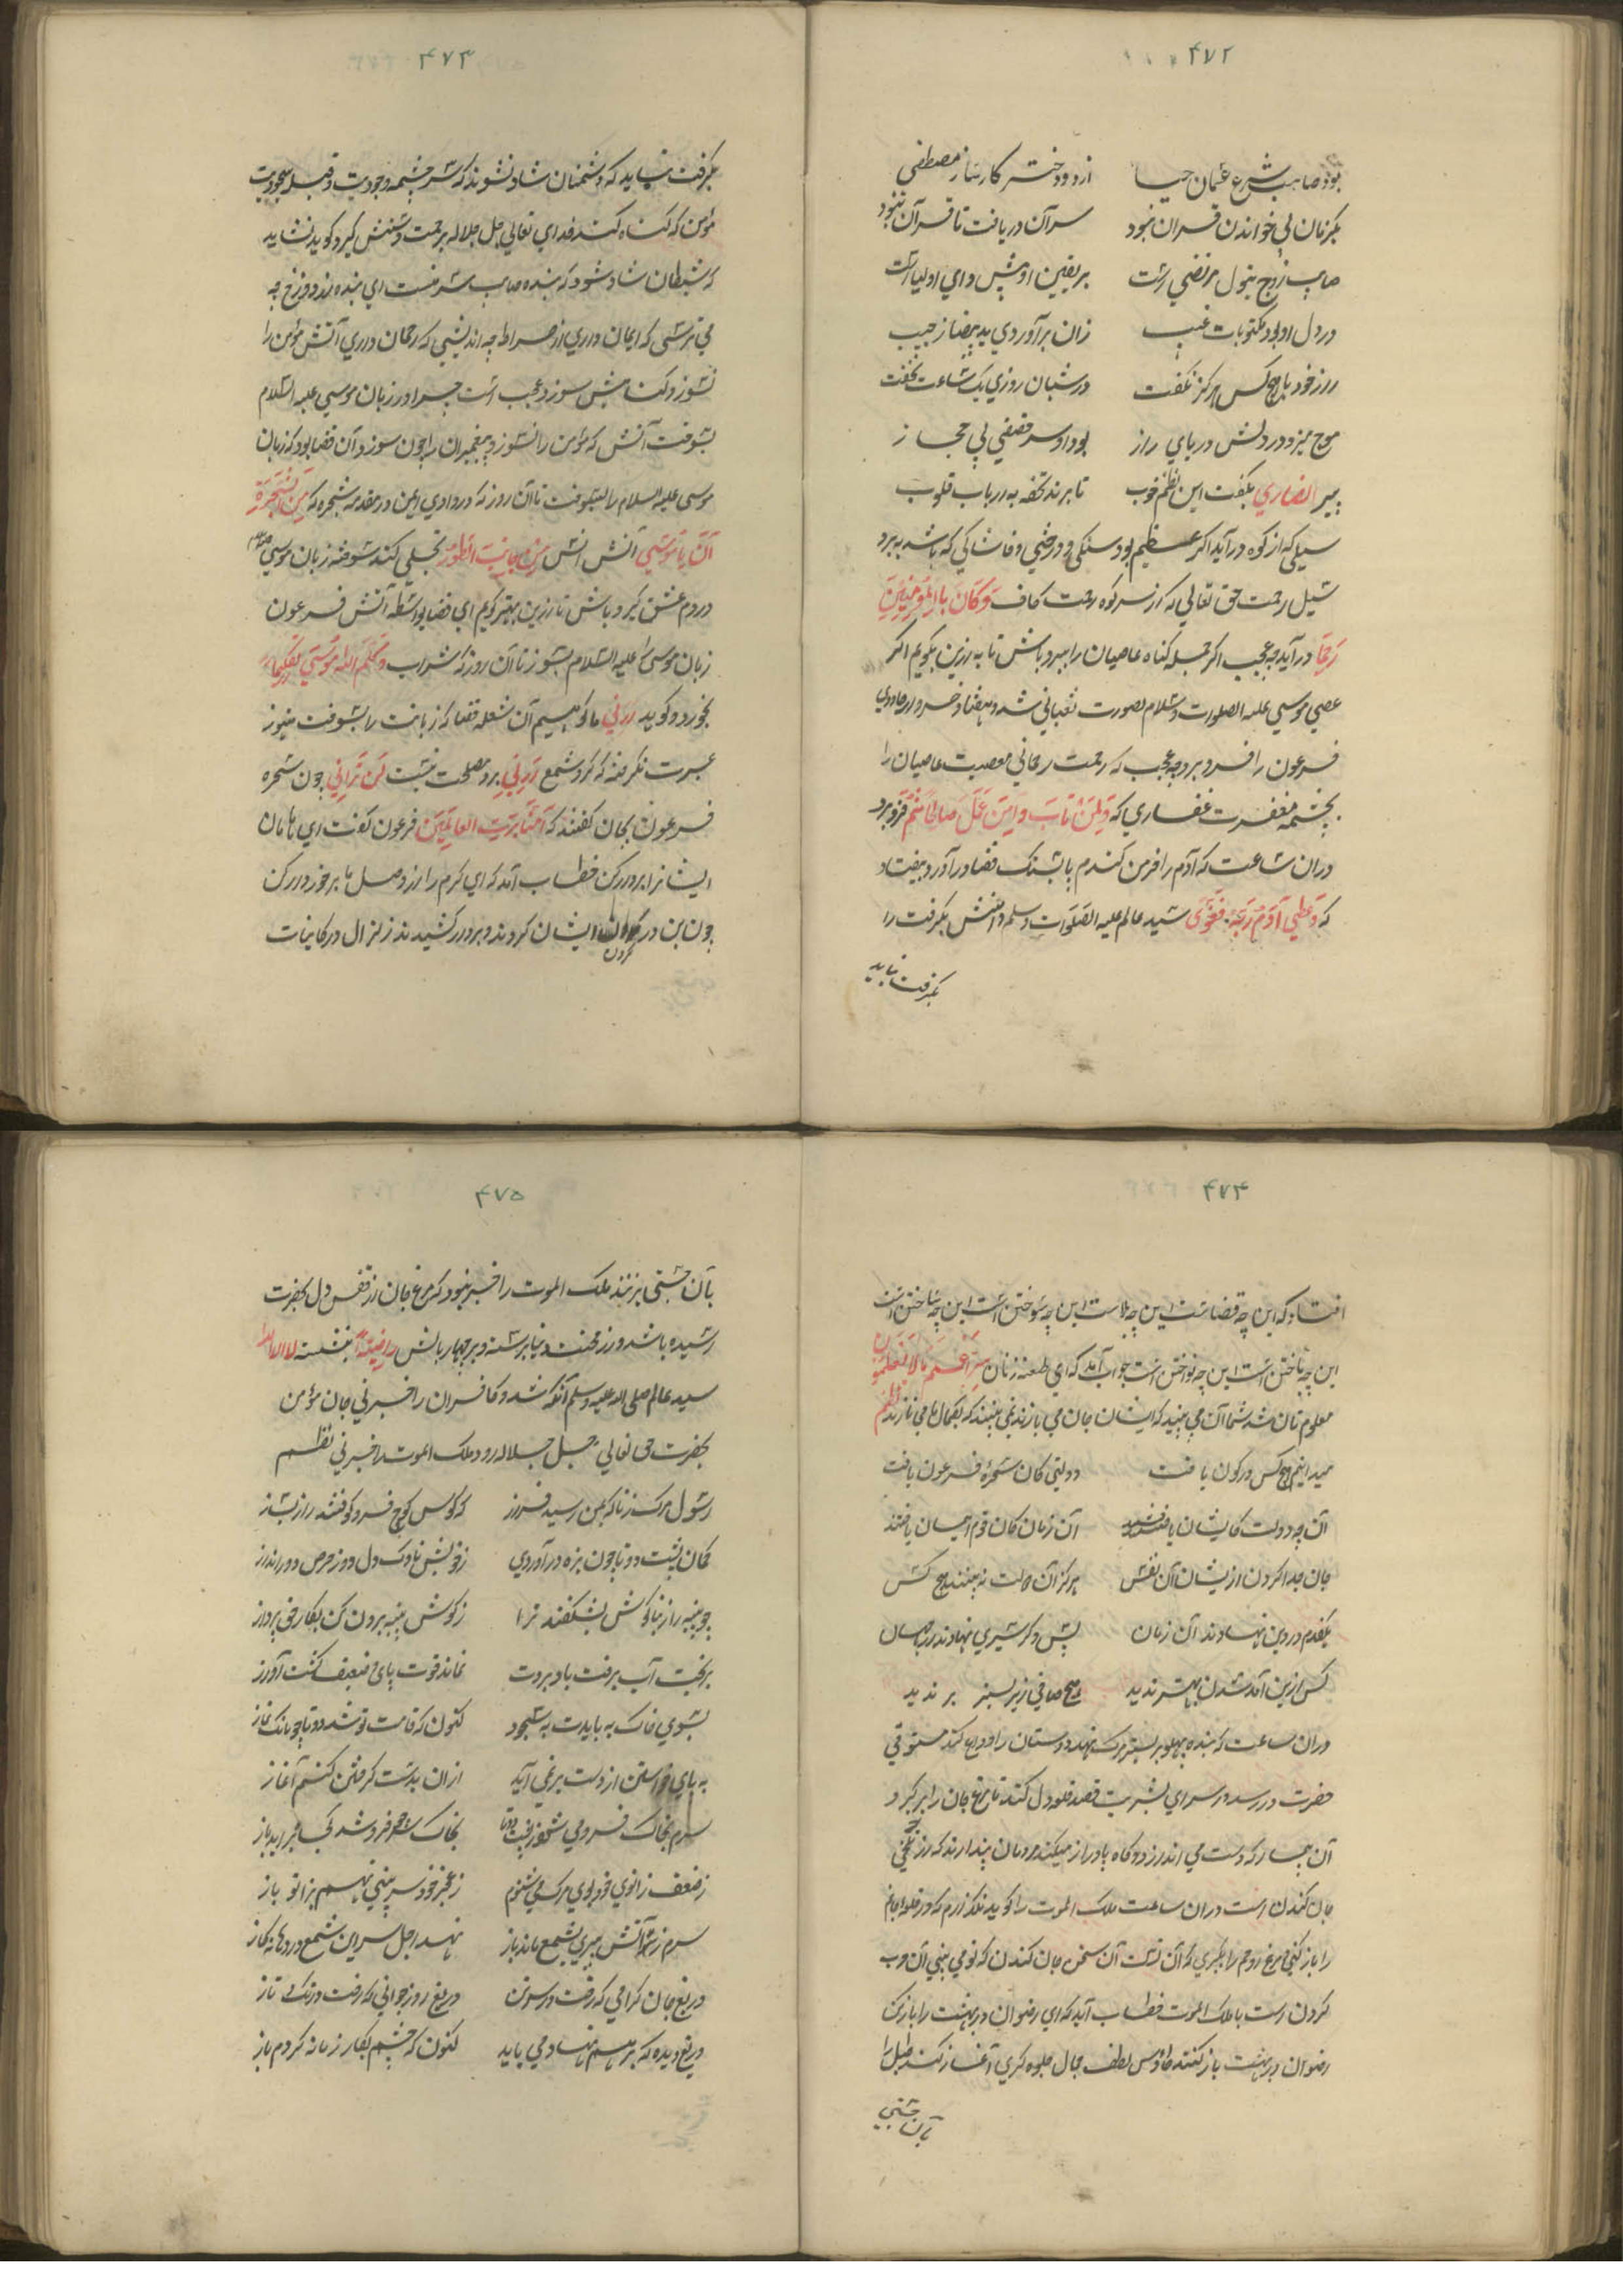 ۴۷۲
بود صاحب شرع عثمان حیا از دو دختر کارساز مصطفی
یکزمان بی خواندن قران نبود سر آن دریافت تا قرآن نبود
صاحب زوج بتول مرتضی است بر یقین او پیشوای اولیا است
در دل او بود مکتوبات غیب زان برآوردی ید بیضا ز جیب
راز خود با هیچ کس هرگز نگفت در شبان روزی یک ساعت نخفت
موج میزد در دلش دریای راز بود او سر
پیر انصاری بگفت این نظم خوب تا برند تحفه به ارباب قلوب
سیلی که از کوه درآید اگر عظیم بود سنگی و درختی و خاشاکی که باشد ببرد
سیل رحمت حق تعالی که از سر کوه رحمت کاف وکان بالمؤمنین
رحیما درآید چه عجب اگر جمله گناه عاصیان را ببرد باش تا به ازین بگویم اگر
عصی موسی علیه الصلوات وسلام بصورت ثعبانی شد و هفتاد خروار جادوی
فرعون را فرو برد چه عجب که رحمت رحمانی معصیت عاصیان را
بچشمه مغفرت غفاری که ولمن تاب وامن عمل صالحا فرو برد
دران ساعت که آدم را خرمن گندم با سنگ قضا درآورد بیفتاد
که وعصی آدم ربه فغوی سید عالم علیه الصلوات وسلم دامنش بگرفت را
بگرفت نباید
۴۷۳
بگرفت نباید که دشمنان شاد نشوند که سر چشمه وجودیت و قبله سجودیت
مؤمن که گناه کند خدای تعالی جل جلاله برحمت دستش گیرد گوید نشاید
که شیطان شاد شود که بنده صاحب شرمست ای بنده از دوزخ چه
می ترسی که ایمان داری از صراط چه اندیشی که رحمان داری آتش مؤمن را
نسوزد گناهش سوزد عجب است چرا در زبان موسی علیه السلام
بسوخت آتش که مؤمن را نسوزد پیغمبران را چون سوزد آن قضا بود که زبان
موسی علیه السلام را بسوخت تا آن روز که در وادی ایمن در مقدمه شجره که من الشجرة
آن یا موسی آتش انس من جانب الطور تجلی کند سوخته زبان موسی
در دم عشق گیرد باش تا ازین بهتر گویم ای قضا بواسطه آتش فرعون
زبان موسی را علیه السلام بسوز تا آن روز که شراب وکلم الله موسی تکلیما
بخورد و گوید ارنی ما گوییم آن شعله قضا که زبانت را بسوخت هنوز
عبرت نگرفته که گرد شمع ارنی برد مصلحت نیست لن ترانی چون سحره
فرعون بجان گفتند که آمنا برب العالمین فرعون گفت ای هامان
ایشانرا بر دار کن خطاب آمد که ای کرم را از وصل ما برخوردار کن
چون بن در گردن ایشان کردند و بر دار کشیدند زلزال در کاینات
۴۷۴
افتاد که این چه قضاست این چه بلاست این چه سوختن است این چه ساختن است
این چه تاختن است این چه نواختن است جواب آمد که ای طعنه زنان اعلم ما لا تعلمون
معلوم تان شد شما آن می بینید که ایشان جان می بازند نمی بینند که بجمال ما می نازند نظم
میدانیم هیچ کس در کون یافت دولتی کان سحره فرعون یافت
آن چه دولت کایشان یافتند آن زمان کان قوم ایمان یافتند
جان جدا کردن ازیشان آن نفس هرگز آن دولت نه بیند هیچ کس
یکقدم در دین نهادند آن زمان پس دگر نهادند در جهان
کس ازین آمد شدن بهتر ندید هیچ صافی زیر بستر بر ندید
دران ساعت که بنده پهلو بر بستر مرگ نهد دوستان را وداع کند مستوفی
حضرت در رسد در سرای بشریت قصد قلعه دل کند تا مرغ جان را برگیرد
آن بیمار که دست می اندازد و گاه پا دراز میکند مردمان پندارند که از تلخی
جان کندن است دران ساعت ملک الموت را گوید نگذارم که در قلعه ایمانم
را باز کنی مرغ روحم را بگیری که آن نیست آن سخن جان کندن که تو می بینی آن حرب
کردن است با ملک الموت خطاب آید که ای رضوان در بهشت را باز کن
رضوان در بهشت باز کنند طاوس لطف جمال جلوه گری آغاز کند طبل را
بآن جستی
۴۷۵
بآن جستی بر نزند ملک الموت را خبر نبود که مرغ جان از قفس دل بحضرت
رسیده باشد و از محنت دنیا برسته و بر چهار بالش راضیة بنشسته لا اله الا الله
سید عالم صلی الله علیه وسلم آنگه شد و کافران را خبر نی جان مؤمن
بحضرت حق تعالی جل جلاله رود ملک الموت را خبر نی نظم
رسول مرگ ز ناگه بمن رسید فراز که کوس کوچ فرو کوفتند راز بساز
کمان پشت دو تا چون بزه درآوردی ز خویش ناوک دل دوز حرص دور انداز
چو پنبه زار بناگوش بشکفند ترا ز گوش پنبه برون کن بکار خود پرداز
بریخت آب برفت باد بروت نماند قوت پای و ضعیف گشت آواز
بسوی خاک به بایدت به سجود کنون که قامت تو شد دو تا چو بانگ نماز
به پای خواستن از دست بر نمی آید ازان بدست گرفتن کنم آغاز
سرم بخاک فرو می شود ز پشت دوتا بخاک هر که فرو شد کجا برآید باز
ز ضعف زانوی خود بوی مرگ می شنوم ز عجز خود سر پینی نهم بزانو باز
سرم ز آتش پیری بشمع ماند باز نهد اجل سر این شمع در دهانه گاز
دریغ جان گرامی که رفت در سر تن دریغ روز جوانی که رفت در تک تاز
دریغ دیده که بر هم نهاد می باید کنون که چشم بکار زمانه کردم باز